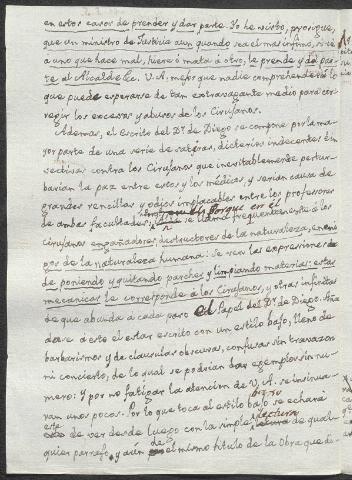 en estos casos de prender y dar parte. Yo he visto, prosigue,
que un ministro de Justicia aun quando sea el mas infimo, si ve
à uno que hace mal, hiere ò mata à otro, le prende y da par-
te al Alcalde &c. V. A. mejor que nadie comprehenderà lo
que puede esperarse de tan extravagante medio para cor-
regir los excesos y abusos de los Cirujanos.
Ademas, el Escrito del Dr. de Diego se compone por la ma-
yor parte de una serie de satyras, dicterios indecentes è in-
vectivas contra los Cirujanos que inevitablemente pertur-
barian la paz entre estos y los médicos, y serian causa de
grandes rencillas y odios implacables entre los profesores
de ambas facultades; porque en èl se llaman frequentemente à los
Cirujanos engañadores, destructores de la naturaleza, enemi-
gos de la naturaleza humana: se ven las expresiones de
de poniendo y quitando parches y limpiando materias: esta
mecanica le corresponde à los Cirujanos, y otras infinitas
de que abunda à cada paso el Papel del Dr. de Diego. Aña-
dase à esto el estar escrito con un estilo bajo, lleno de
barbarismos y de clausulas obscuras, confusas sin trabazon
ni concierto, de lo qual se podrian dar exemplos sin nu-
mero; y por no fatigar la atencion de V. A. se insinua-
ran unos pocos. Por lo que toca al estilo bajo se echarà
de ver desde luego con la simple lectura de qual-
quier parrafo, y aún el mismo titulo de la Obra que di-